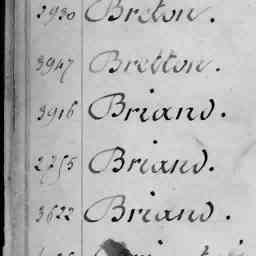 2930 Breton.
3947 Bretton.
3916 Briand.
2755 Briand.
3622 Briand.